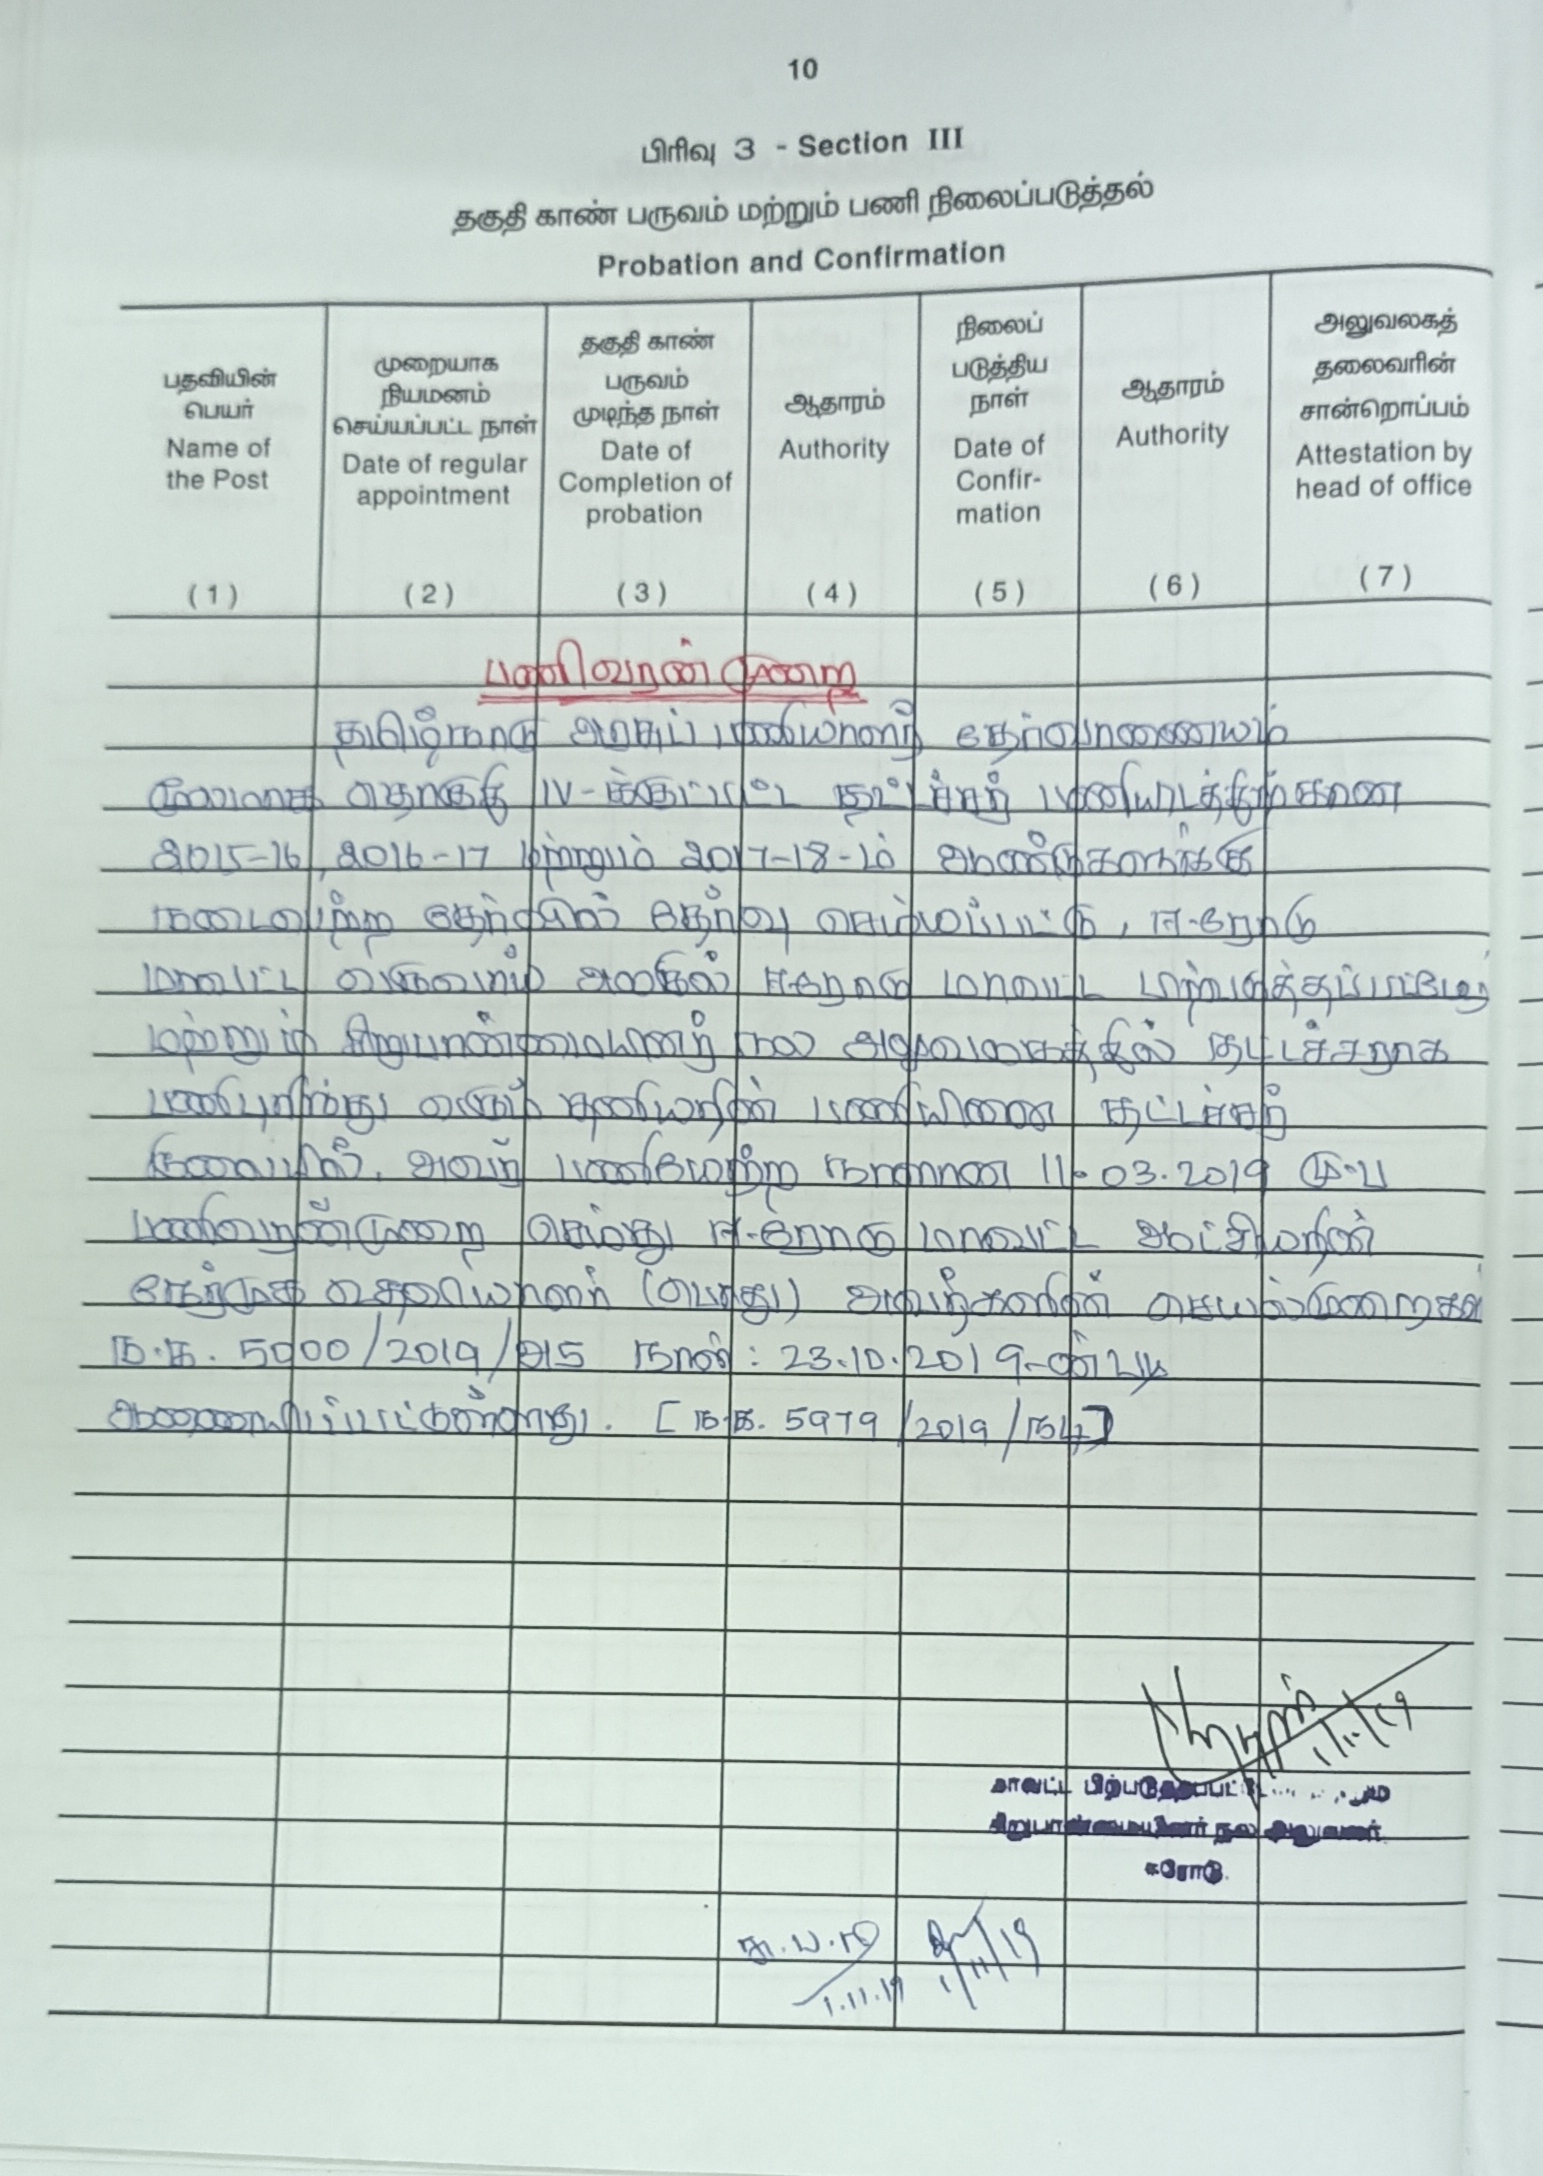 10
பிரிவு 3 - Section III
தகுதி காண் பருவம் மற்றும் பணி நிலைப்படுத்தல்
Probation and Confirmation
பதவியின் பெயர் Name of the Post
முறையாக நியமனம் செய்யப்பட்ட நாள் Date of regular appointment
தகுதி காண் பருவம் முடிந்த நாள் Date of Completion of probation
ஆதாரம் Authority
நிலைப் படுத்திய நாள் Date of Confir- mation
ஆதாரம் Authority
அலுவலகத் தலைவரின் சான்றொப்பம் Attestation by head of office
(1) (2) (3) (4) (5) (6) (7)
பணிவரன்முறை
தமிழ்நாடு அரசுப் பணியாளர் தேர்வாணையம்
மூலமாக தொகுதி IV-க்குட்பட்ட தட்டச்சர் பணியிடத்திற்கான
2015-16, 2016-17 மற்றும் 2017-18-ம் ஆண்டுகளுக்கு
நடைபெற்ற தேர்வில் தேர்வு செய்யப்பட்டு, ஈரோடு
மாவட்ட வருவாய் அலகில் ஈரோடு மாவட்ட பிற்படுத்தப்பட்டோர்
மற்றும் சிறுபான்மையினர் நல அலுவலகத்தில் தட்டச்சராக
பணிபுரிந்து வரும் தனியரின் பணியினை தட்டச்சர்
நிலையில், அவர் பணியேற்ற நாளான 11.03.2019 மு.ப
பணிவரன்முறை செய்து ஈரோடு மாவட்ட ஆட்சியரின்
நேர்முக உதவியாளர் (பொது) அவர்களின் செயல்முறைகள்
ந.க. 5000/2019/அ5 நாள்: 23.10.2019-ன்படி
ஆணையிடப்பட்டுள்ளது. [ந.க. 5979/2019/ந4]
1/11/19
மாவட்ட பிற்படுத்தப்பட்டோர்
சிறுபான்மையினர் நல அலுவலர்
ஈரோடு.
1.11.19 1/11/19